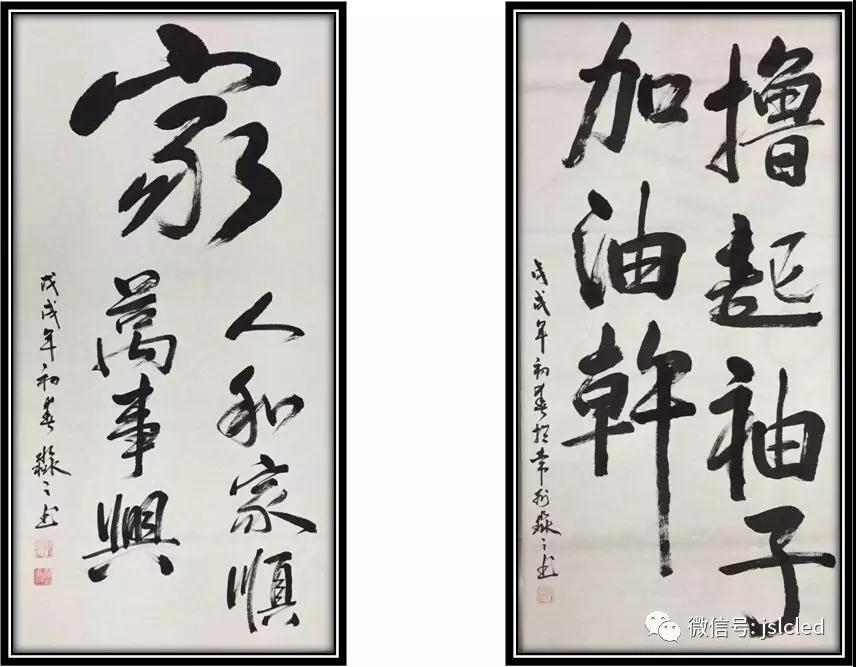 家
人和家順
萬事興
戊戌年初春
撸起袖子
加油幹
戊戌年初春於常州
微信号: jslcled